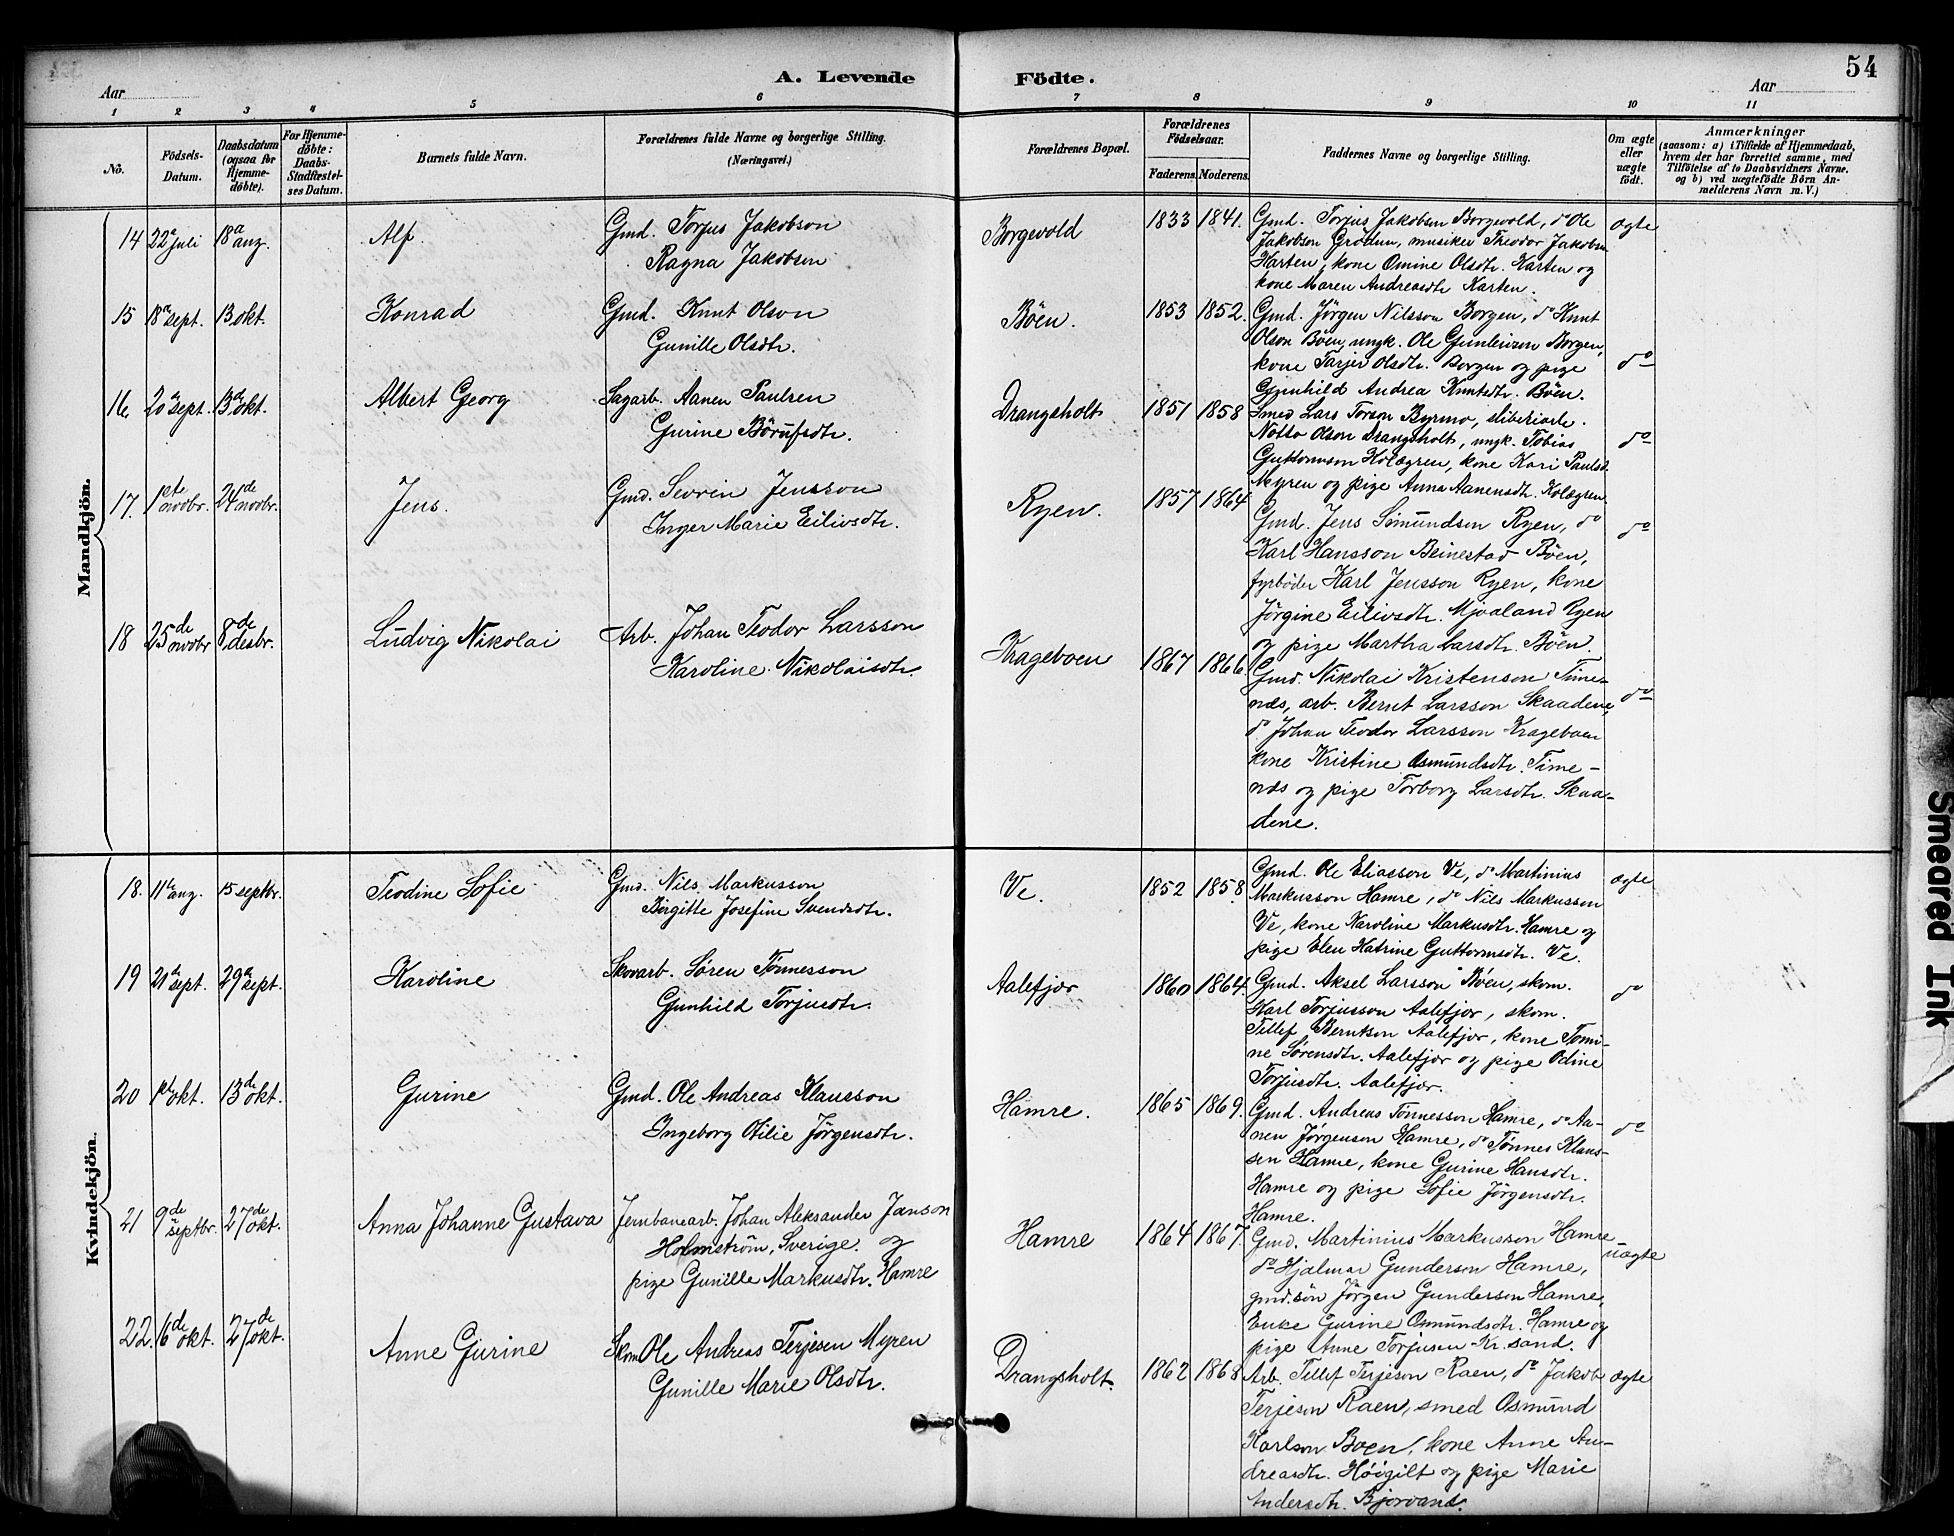 A. Levende Födte.
54
Aar
Aar
1 2 3 4 5 6 7 8 9 10 11
No.
Födsels-
Datum.
Daabsdatum
(ogsaa for
Hjemme-
döbte).
For Hjemme-
döbte:
Daabs-
Stadfæstel-
ses Datum.
Barnets fulde Navn.
Forældrenes fulde Navne og borgerlige Stilling.
(Næringsvei.)
Forældrenes Bopæl.
Forældrenes
Födselsaar.
Faderens. Moderens.
Faddernes Navne og borgerlige Stilling.
Om ægte
eller
uægte
födt.
Anmærkninger
(saasom: a) i Tilfælde af Hjemmedaab,
hvem der har forrettet samme, med
Tilföielse af to Daabsvidners Navne.
og b) ved uægtefödte Börn An-
melderens Navn m. V.)
Mandkjön.
14 22de juli 18de aug. Alf. Gmd. Torjus Jakobson
Ragna Jakobsen
Borgevold 1833 1841.
Gmd. Torjus Jakobsen Borgevold, do Ole
Jakobson Grödum, musiker Theodor Jakobsen
Karten, kone Omine Olsdtr. Karten og
kone Maren Andreasdtr Karten.
ægte
15 18de sept. 13 okt. Konrad Gmd. Knut Olson
Gunille Olsdtr.
Böen. 1853 1852.
Gmd. Jörgen Nilsson Borgen, do Knut
Olson Böen, ungk. Ole Gunleivson Borgen,
kone Tarjer Olsdtr. Borgen og pige
Gunhild Andrea Knutsdtr. Böen.
do
16 20de sept. 13de okt. Albert Georg Sagarb. Aanen Paulsen
Gurine Börufsdtr.
Drangsholt 1851 1858
Smed Lars Torson Byrmo, sliberiarb.
Notto Olson Drangsholt, ungk. Tobias
Guttormson Kolægren, kone Kari Paulsd.
Myren og pige Anna Aanensdtr. Kolægren.
do
17. 1ste novbr. 24de novbr. Jens. Gmd. Sevrin Jensson
Inger Marie Eilivsdtr.
Ryen. 1857 1864
Gmd. Jens Sömundsen Ryen, do
Karl Hansson Beinestad Böen,
fyrböder Karl Jensson Ryen, kone
Jörgine Eilivsdtr. Mjaaland Ryen
og pige Martha Larsdtr. Böen.
do
18 25de novbr 8de desbr. Ludvig Nikolai Arb. Johan Teodor Larsson
Karoline Nikolaisdtr.
Krageboen 1867 1866.
Gmd. Nikolai Kristenson Time-
næs, arb. Bernt Larsson Skaadene,
do Johan Teodor Larsson Krageboen
kone Kristine Osmundsdtr. Time-
næs og pige Torborg Larsdtr. Skaa-
dene.
do
Kvindekjön.
18. 11te aug. 15 septbr. Teodine Sofie Gmd. Nils Markusson
Birgitte Josefine Svendsdtr.
Ve. 1852 1858.
Gmd. Ole Eliasson Ve, do Martinius
Markusson Hamre, do Nils Markusson
Ve, kone Karoline Markusdtr. Hamre og
pige Elen Katrine Guttormsdtr. Ve.
ægte
19 21de sept. 29de sept. Karoline Skovarb. Sören Tönnesson
Gunhild Torjusdtr.
Aalefjær 1860 1864.
Gmd. Aksel Larsson Böen, skom.
Karl Torjusson Aalefjær, skom.
Tellef Berntson Aalefjær, kone Tomi-
ne Sörensdtr. Aalefjær og pige Odine
Torjusdtr. Aalefjær.
do
20 1ste okt. 13de okt. Gurine Gmd. Ole Andreas Klausson
Ingeborg Otilie Jörgensdtr.
Hamre. 1865 1869.
Gmd. Andreas Tönnesson Hamre, do Aa-
nen Jörgenson Hamre, do Tönnes Klaus-
sen Hamre, kone Gurine Hansdtr.
Hamre og pige Sofie Jörgensdtr.
Hamre.
do
21 9de septbr. 27de okt. Anna Johanne Gustava Jernbanearb. Johan Aleksander Janson
Holmström, Sverige. og
pige Gunille Markusdtr. Hamre
Hamre 1864 1867.
Gmd. Martinius Markusson Hamre
do Hjalmar Gunderson Hamre,
gmd.sön Jörgen Gunderson Hamre,
Enke Gurine Osmundsdtr. Hamre og
pige Anne Torjusen Kr.sand.
uægte
22. 6de okt. 27de okt. Anne Gurine Skom Ole Andreas Terjesen Myren
Gunille Marie Olsdtr.
Drangsholt. 1862 1868
Arb. Tellef Terjeson Raen, do Jakob
Terjeson Raen, smed Osmund
Karlson Boen, kone Anne An-
dreasdtr. Höigilt og pige Marie
Andersdtr. Bjorvand.
ægte
Smeared Ink